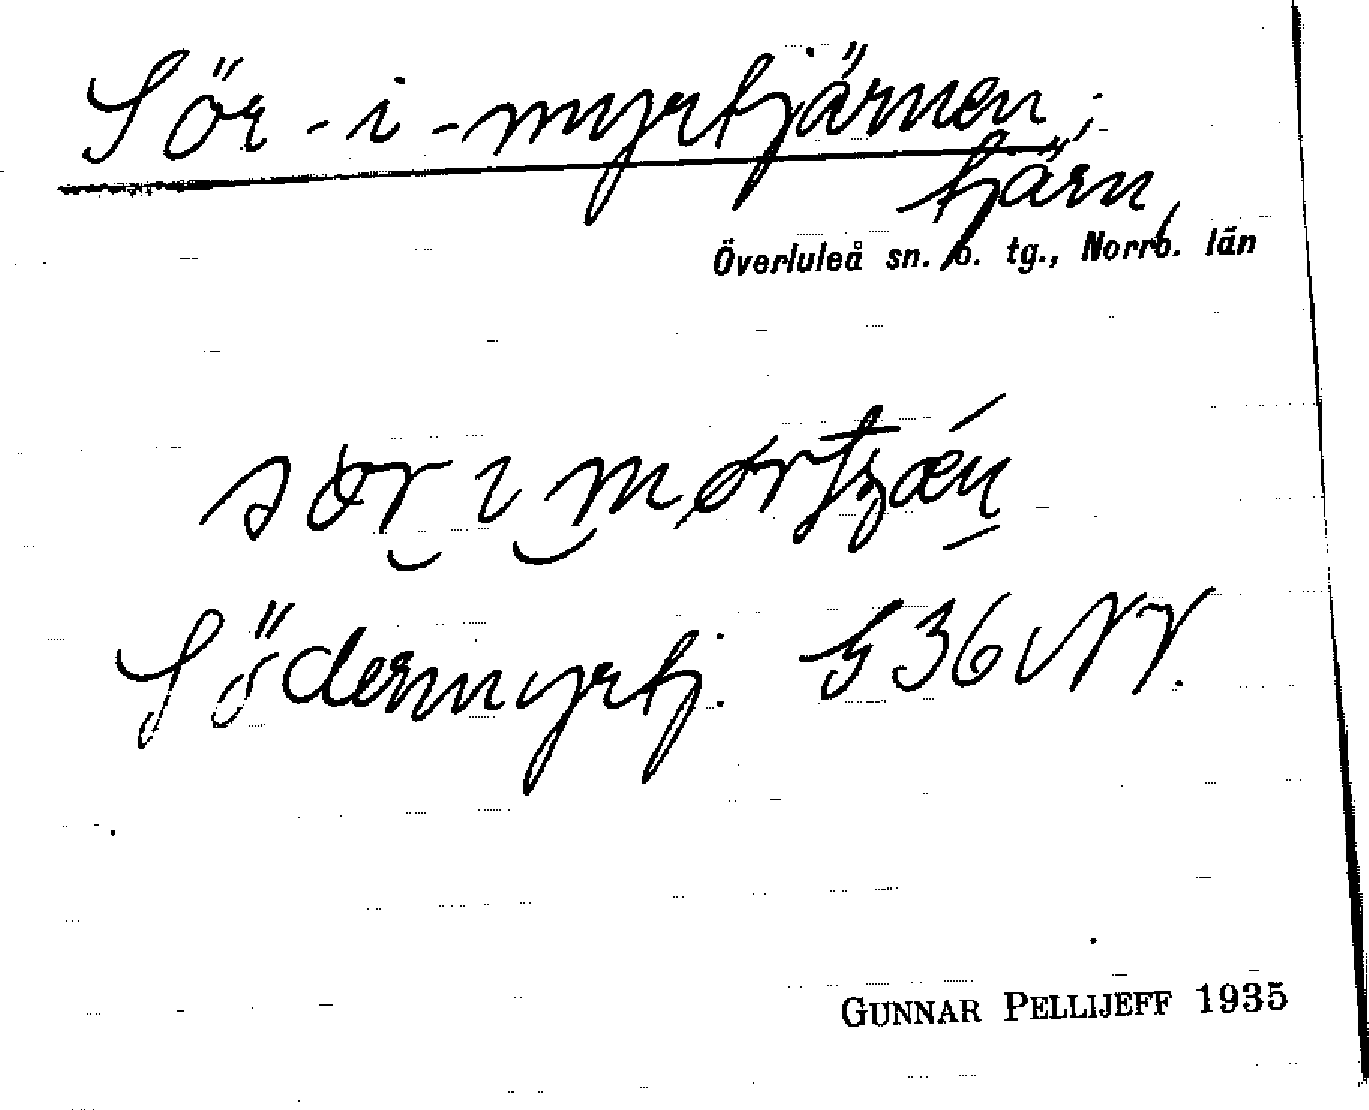 Sör-i-myrtjärnen,
tjärn
Överluleå sn. o. tg., Norrb. län
Södermyrtj. G 36 NV.
GUNNAR PELLIJEFF 1935